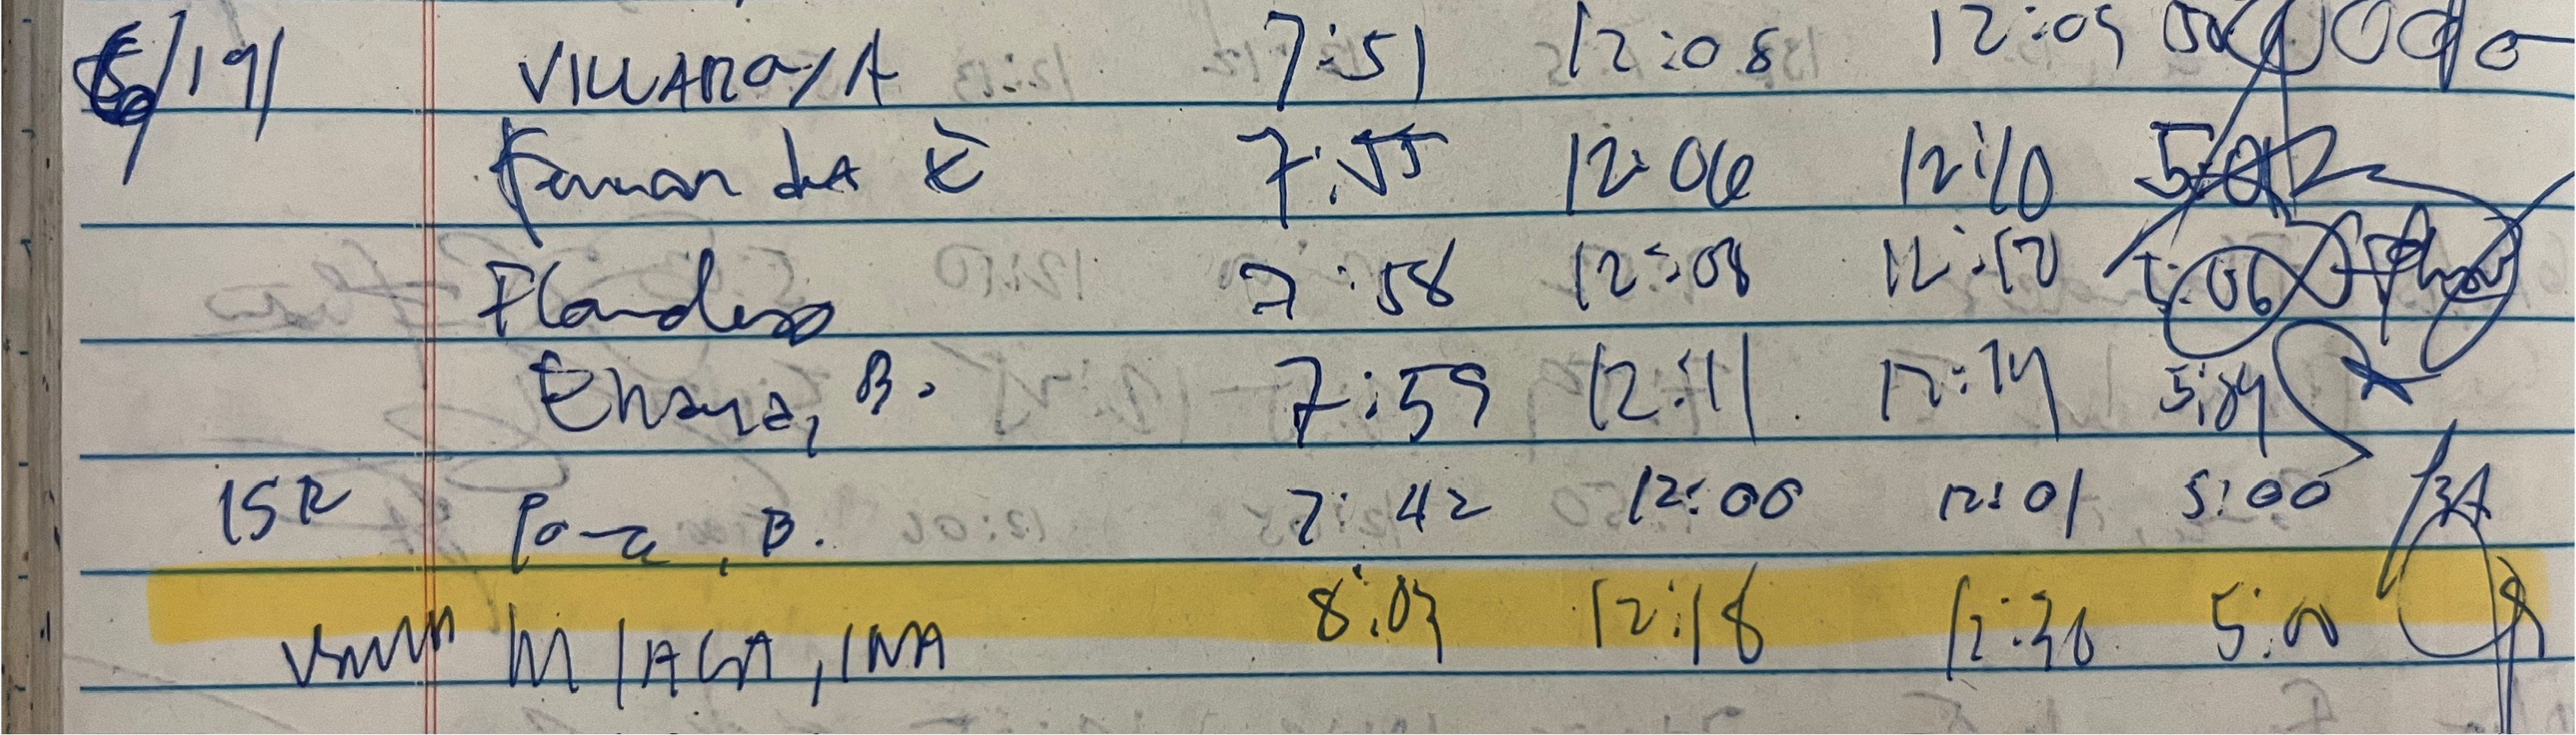 6/19/ VILLAROYA 7:51 12:08 12:09 5:00
Fernandez E 7:55 12:06 12:10 5:02
Flandess 7:58 12:08 12:12 5:06
Ehaya, B. 7:59 12:11 12:14 5:04
ISR B. 7:42 12:00 12:01 5:00
8:03 12:18 12:30 5:00